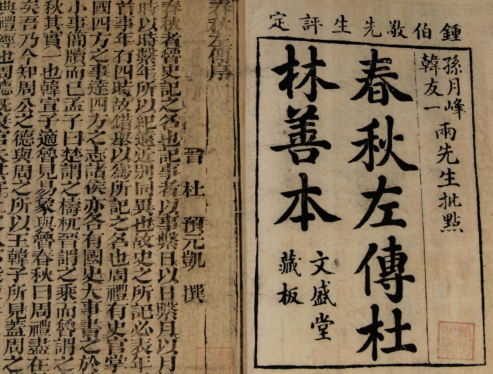 鍾伯敬先生評定
孫月峰
韓友一
兩先生批點
春秋左傳杜
林善本
文盛堂
藏板
春秋左傳序
晉 杜 預元凱 撰
春秋者魯史記之名也記事者以事繫日以日繫月以月
時以時繫年所以紀遠近別同異也故史之所記必表年
首事年有四時故錯舉以爲所記之名也周禮有史官掌
國四方之事達四方之志諸侯亦各有國史大事書之於
小事簡牘而已孟子曰楚謂之檮杌晉謂之乘而魯謂之
秋其實一也韓宣子適魯見易象與魯春秋曰周禮盡在
矣吾乃今知周公之德與周之所以王韓子所見蓋周之
典禮經也周德既衰官失其守